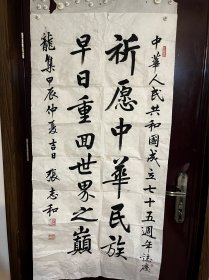 中華人民共和國成立七十五週年誌慶
祈愿中華民族
早日重回世界之巔
龍集甲辰仲夏吉日 張志和